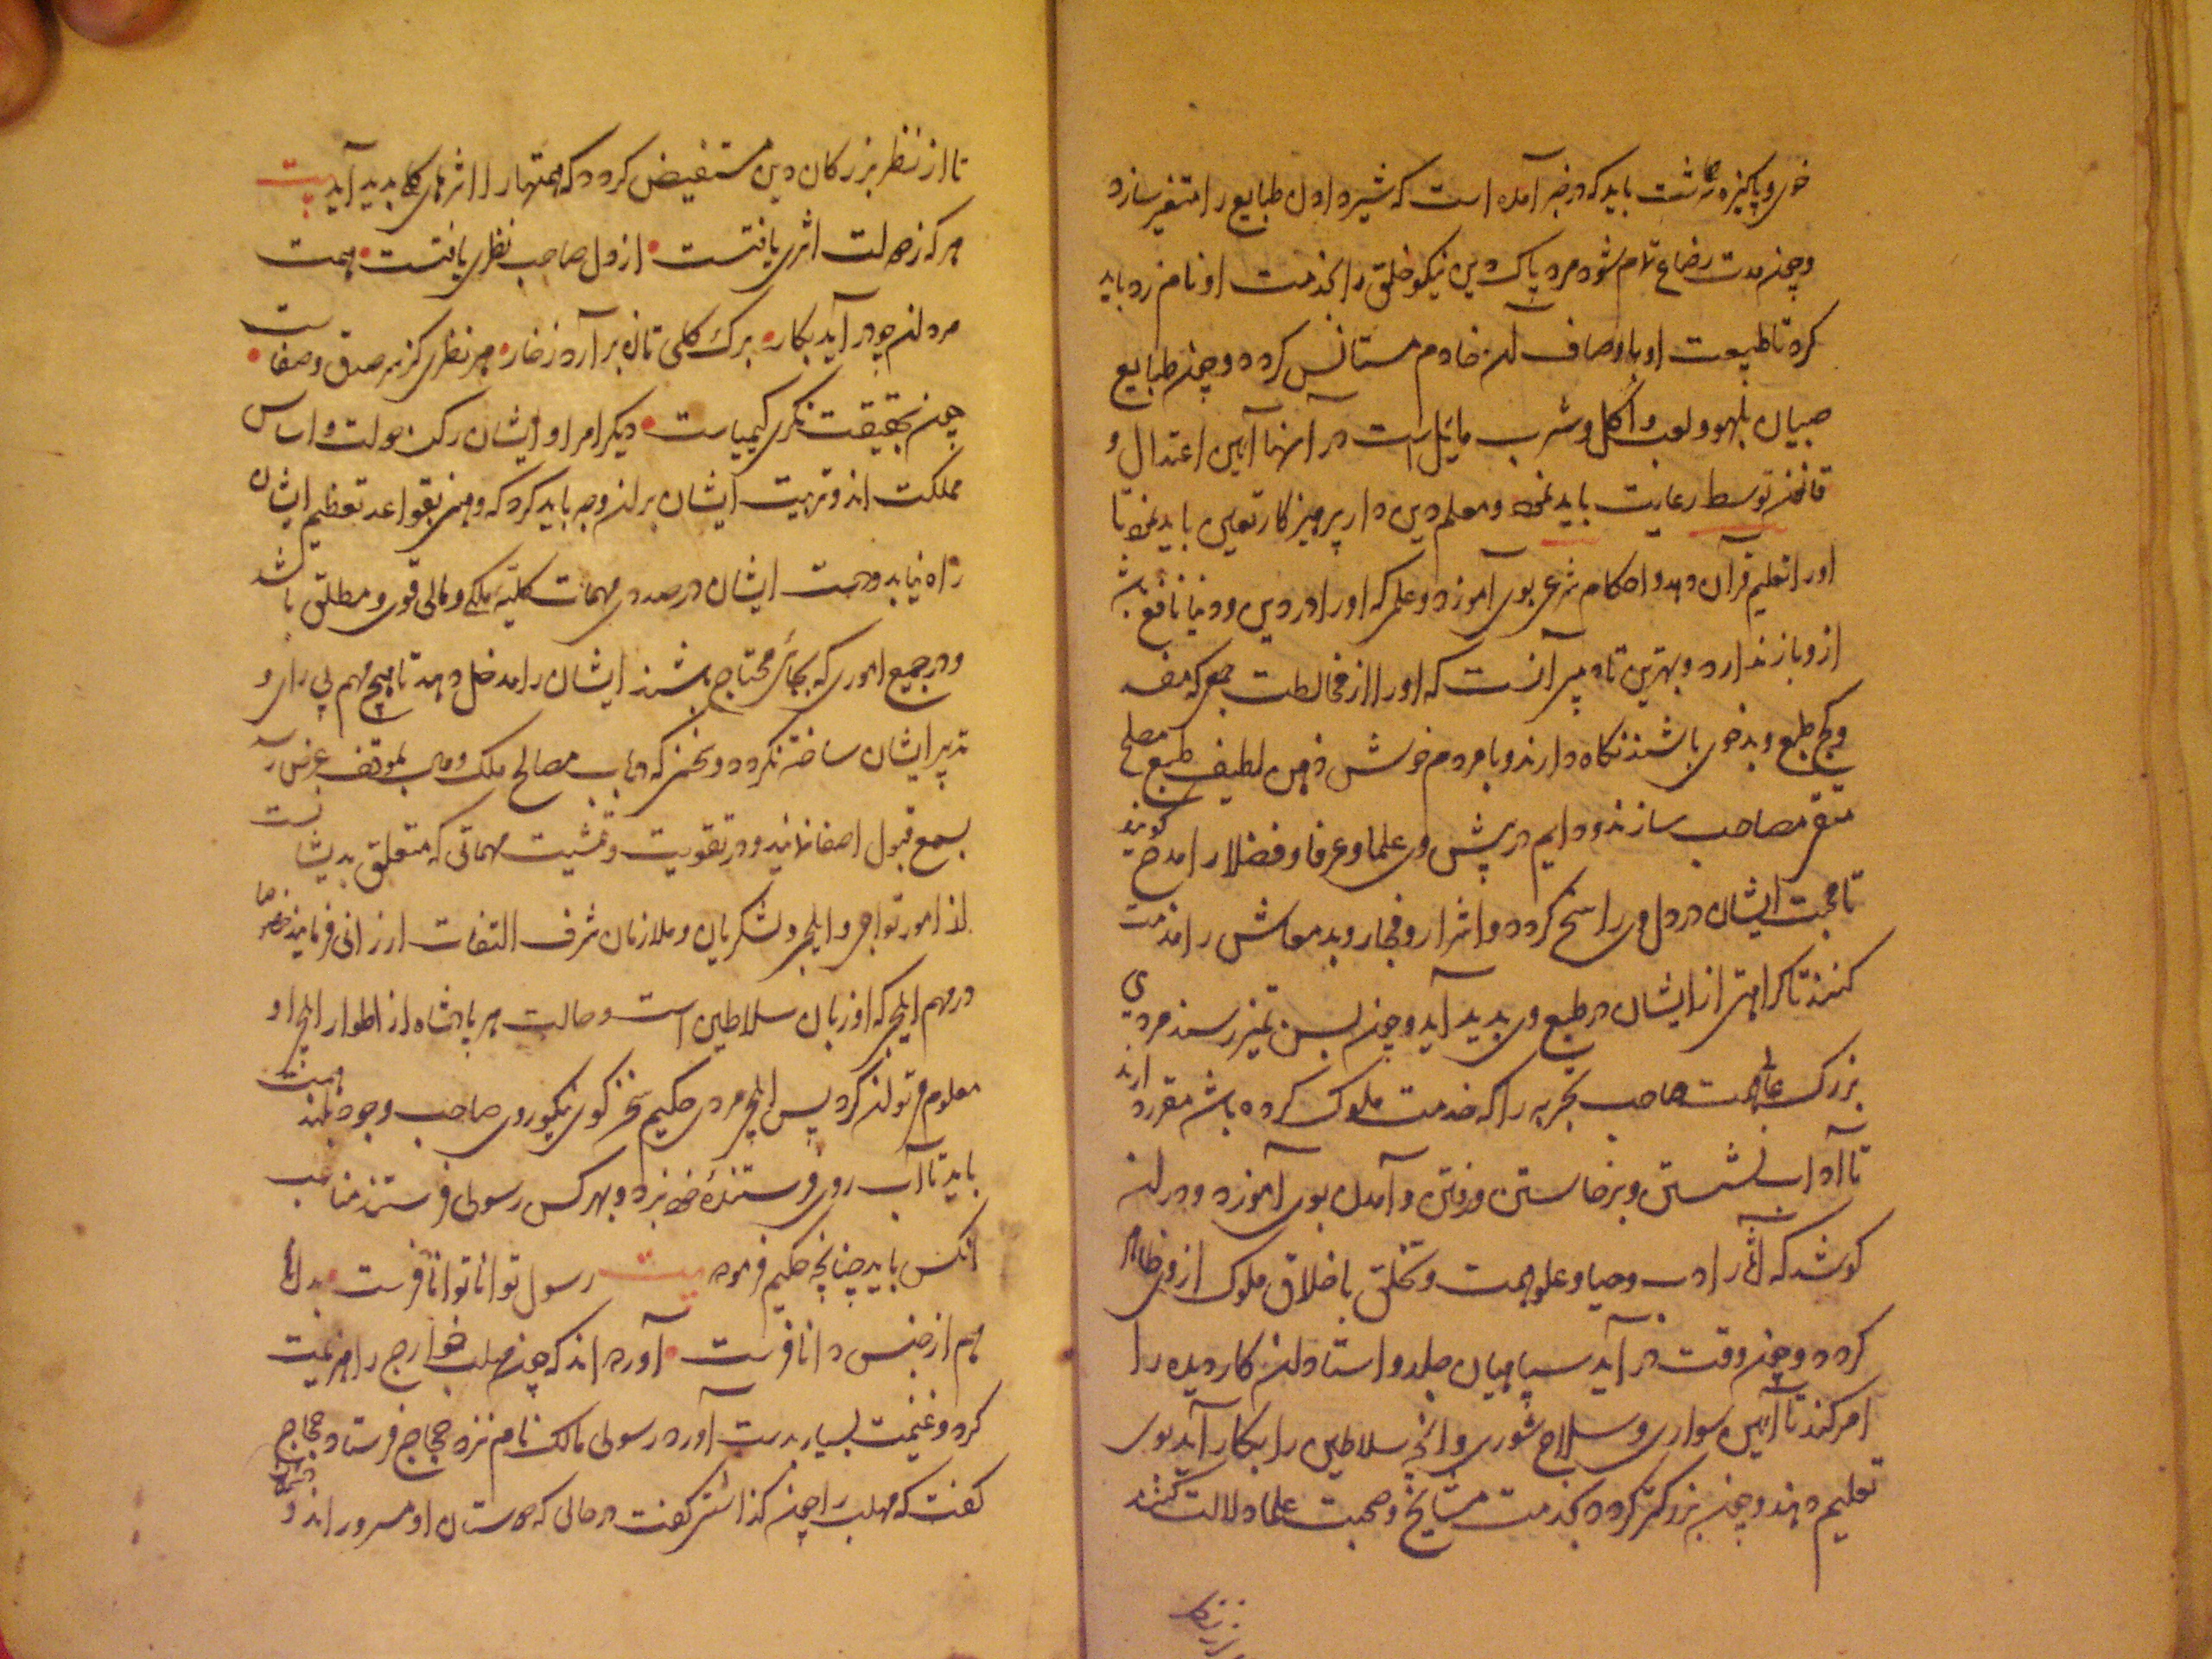 خوی و پاکیزه سرشت باید که در خبر آمده است که شیر دادن طبایع را متغیر سازد
و چون مدت رضاع تمام شود مرد پاک دین نیکو خلق را بخدمت او نامزد باید
کرد تا طبیعت او باوصاف آن خادم مستانس کردد و چون طبایع
صبیان بلهو و لعب و اکل و شرب مایل است در آنها آیین اعتدال و
قانون توسط رعایت باید نمود و معلم دین دار پرهیزکار تعیین باید نمود تا
او را تعلیم قرآن دهد و احکام شرعی بوی آموزد و علمی که او را در دین و دنیا نافع باشد
ازو باز ندارد و بهترین آنست که او را از مخالطت جمعی که سفیه
و کج طبع و بدخوی باشند نکاه دارند و با مردم خوش ذهن لطیف طبع مصلح
متقی مصاحب سازند و دایم در پیش وی علما و عرفا و فضلا را مدح کویند
تا محبت ایشان در دل وی راسخ کردد و اشرار و فجار و بدمعاش را مذمت
کنند تا کراهتی از ایشان در طبع وی پدید آید و چون بسن تمیز رسد مردی
بزرک عالی همت صاحب تجربه را که خدمت ملوک کرده باشد مقرر دارند
تا آداب نشستن و برخاستن و رفتن و آمدن بوی آموزد و در آن
کوشد که آثار ادب و حیا و علو همت و تخلق باخلاق ملوک از وی ظاهر
کردد و چون وقت در آید سپاهیان جلد و استادان کاردیده را
امر کند تا آیین سواری و سلاح شوری و آنچه سلاطین را بکار آید بوی
تعلیم دهند و چون بزرکتر کردد بخدمت مشایخ و صحبت علما دلالت کنند
از نظر
تا از نظر بزرکان دین مستفیض کردد که همتها را اثرهای کلی پدید آید بیت
هر که ز دولت اثری یافتست • از دل صاحب نظری یافتست • همت
مردان چو در آید بکار • برک کلی تازه بر آرد ز خار • هر نظری کز سر صدق و صفاست •
چون بحقیقت نکری کیمیاست • دیکر امرا و ایشان رکن دولت و اساس
مملکت اند و تربیت ایشان بران وجه باید کرد که وهنی بقواعد تعظیم ایشان
راه نیابد و همت ایشان در صدد مهمات کلیه ملکی و مالی قوی و مطلق باشد
و در جمیع اموری که بجای محتاج باشند ایشان را مدخل دهد تا هیچ مهم بی رای و
تدبیر ایشان ساخته نکردد و سخنی که در باب مصالح ملک و مال بموقف عرض رسانند
بسمع قبول اصغا نمایند و در تقویت و تمشیت مهماتی که متعلق بدیشانست
از امور تواجی و ایلچی و لشکریان و ملازمان شرف التفات ارزانی فرمایند خصوصا
در مهم ایلچی که او زبان سلاطین است و حالت هر پادشاه از اطوار ایلچی او
معلوم می توان کرد پس ایلچی مردی حکیم سخن کوی نیکو روی صاحب وجود بلند همت
باید تا آب روی فرستنده خود نبرد و بهر کس رسولی فرستند مناسب
آنکس باید چنانچه حکیم فرموده بیت رسول توانا توانا فرست • بدانا
هم از جنس دانا فرست • آورده اند که چون مهلب خوارج را هزیمت
کرد و غنیمت بسیار بدست آورد رسولی مالک نام نزد حجاج فرستاد حجاج
کفت که مهلب را چون کذاشتی کفت در حالی که دوستان او مسرور اند و